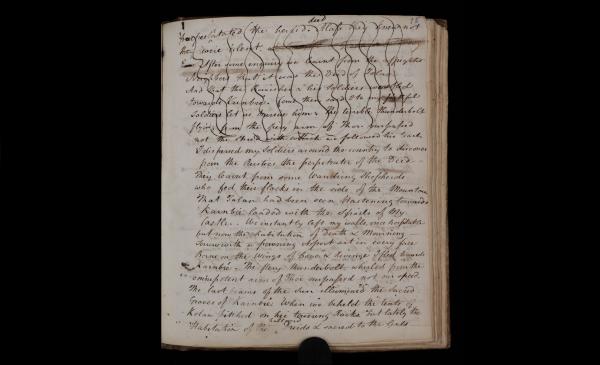 deed
perpetrated the horrid. Alas! they knew not
they were silent
After some enquiry we learnt from the affrighted
Neighbors that it was the Deed of Talan
And that the Ravisher & his Soldiers were fled
towards Karnbie. Come then said I to my faithful
Soldiers let us pursue him. The terrible thunderbolt
flying from the fiery arm of Thor surpassed
not the speed with which we followed his track
I dispersed my Soldiers around the country to discover
from the Rustics the perpetrator of the Deed.
They learnt from some Wandering Shepherds
who fed their flocks in the side of the Mountain
That Talan had been seen Hastening towards
Karnbie loaded with the Spoils of My
Castle. We instantly left my walls, once hospitable
but now the habitation of Death & Mourning
Sorrow with a frowning aspect sat in every face
Borne on the Wings of Love & revenge I fled towards
Karnbie. The fiery thunderbolt whirled from the
omnipotent arm of Thor surpassed not my speed.
The last beams of the Sun illumined the Sacred
Groves of Karnbie. When we beheld the tents of
Kolan pitched on her towering Rocks but lately the
Habitation of the Druids & sacred to the Gods